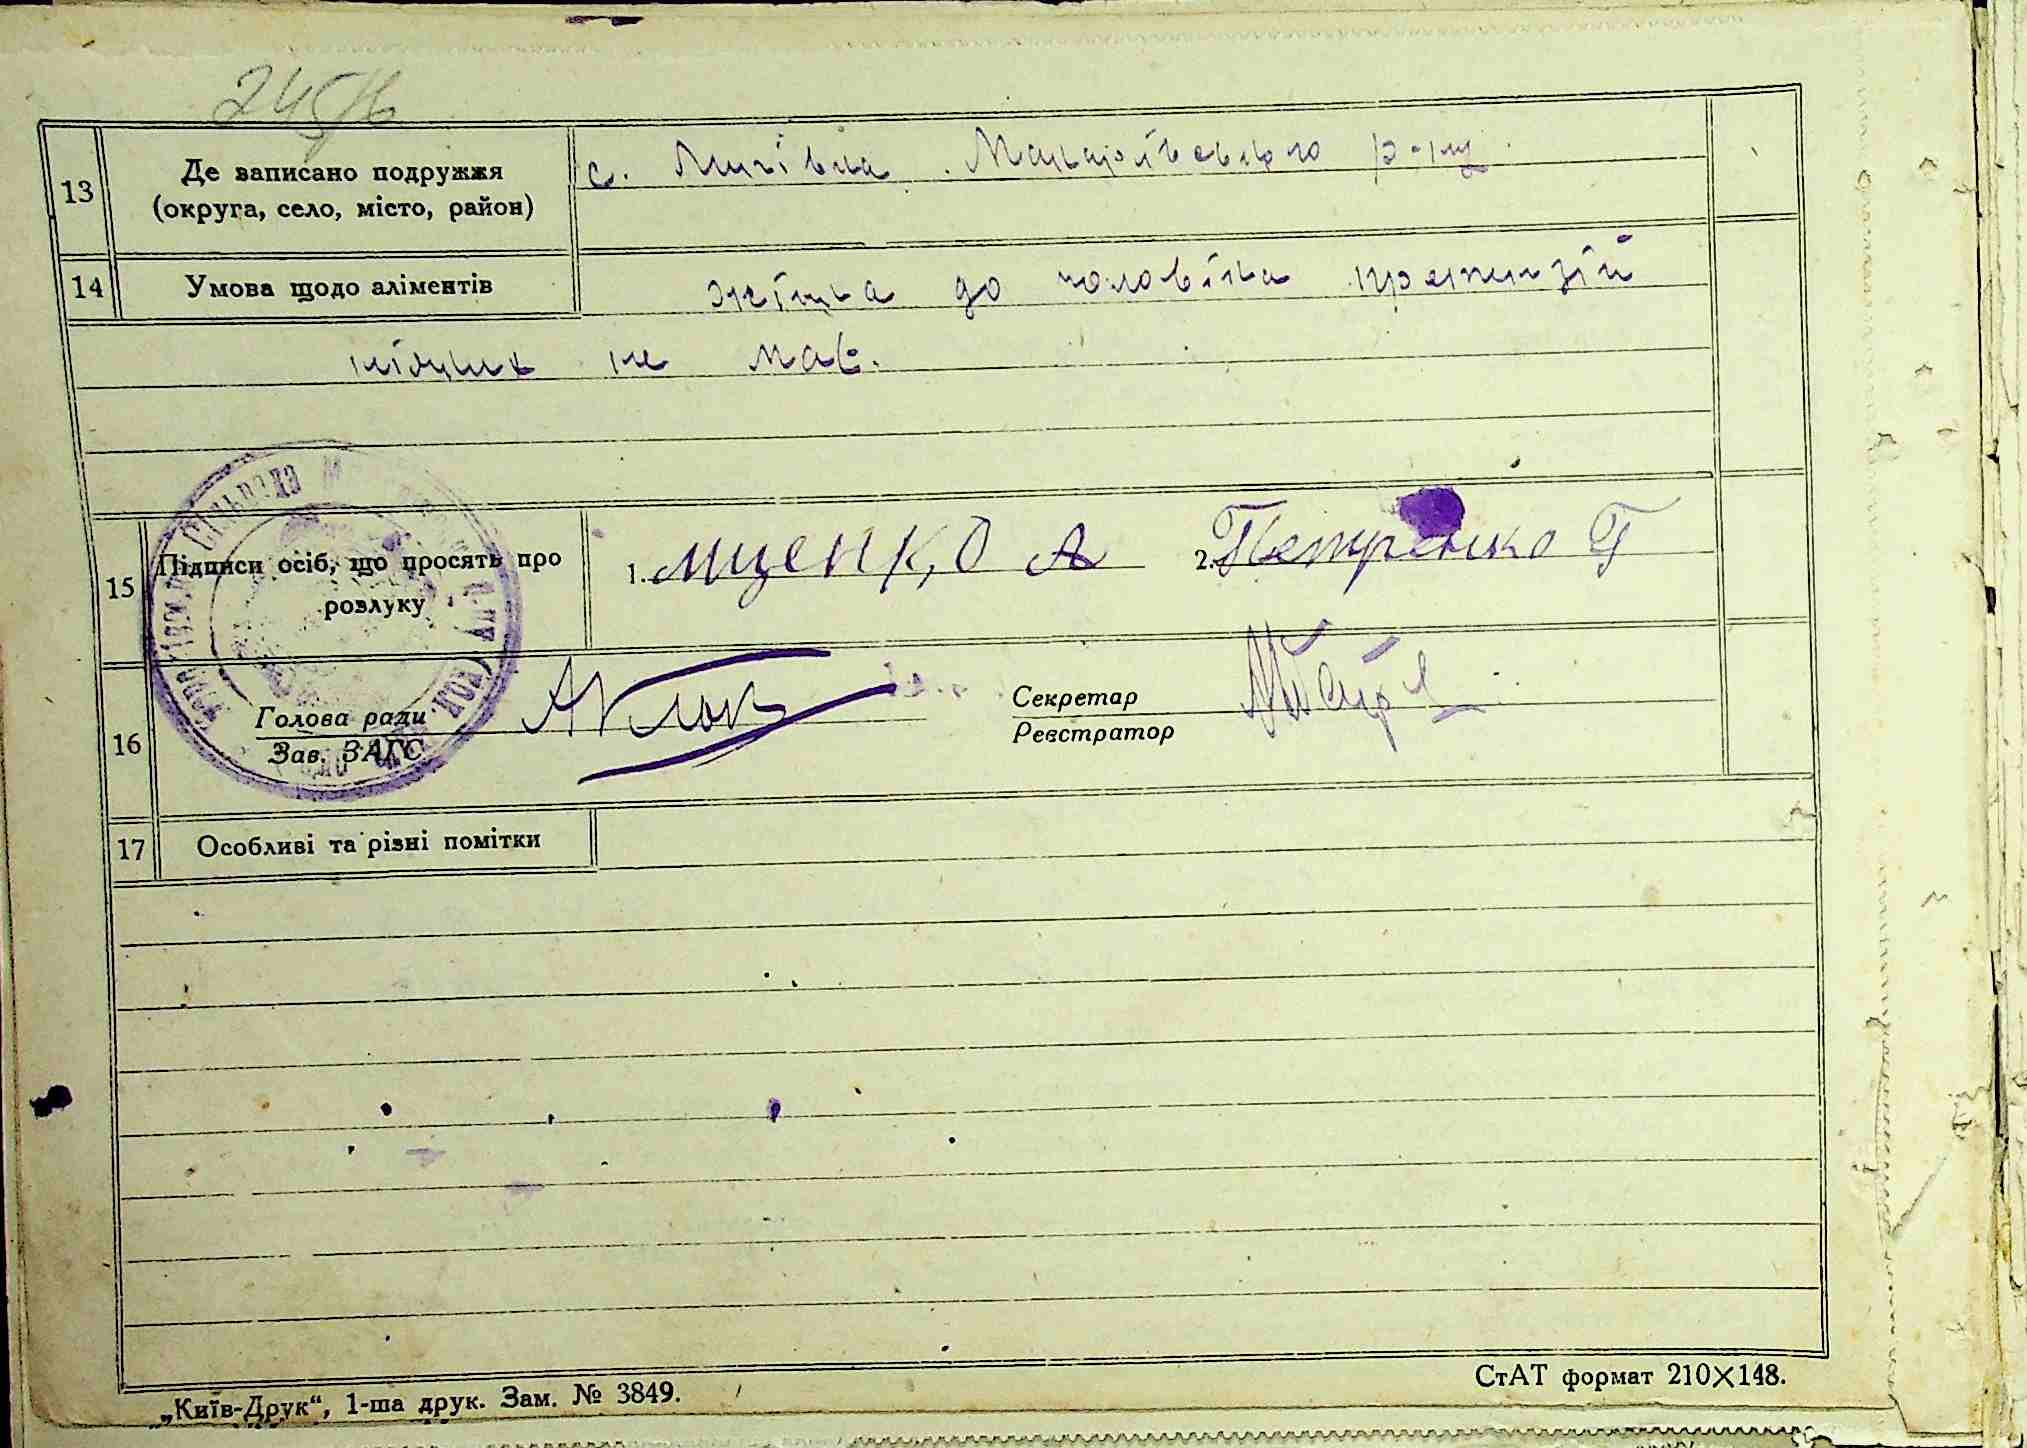 13 Де записано подружжя
(округа, село, місто, район)
с. Макарівського р-ну
14 Умова щодо аліментів
жінка до чоловіка претензій
ніяких не має.
15 Підписи осіб, що просять про
розлуку
1. Мценко А 2. Петренко Г
Сільрада
16 Голова ради
Зав. ЗАГС
Секретар
Реєстратор
17 Особливі та різні помітки
„Київ-Друк“, 1-ша друк. Зам. № 3849.
СтАТ формат 210×148.